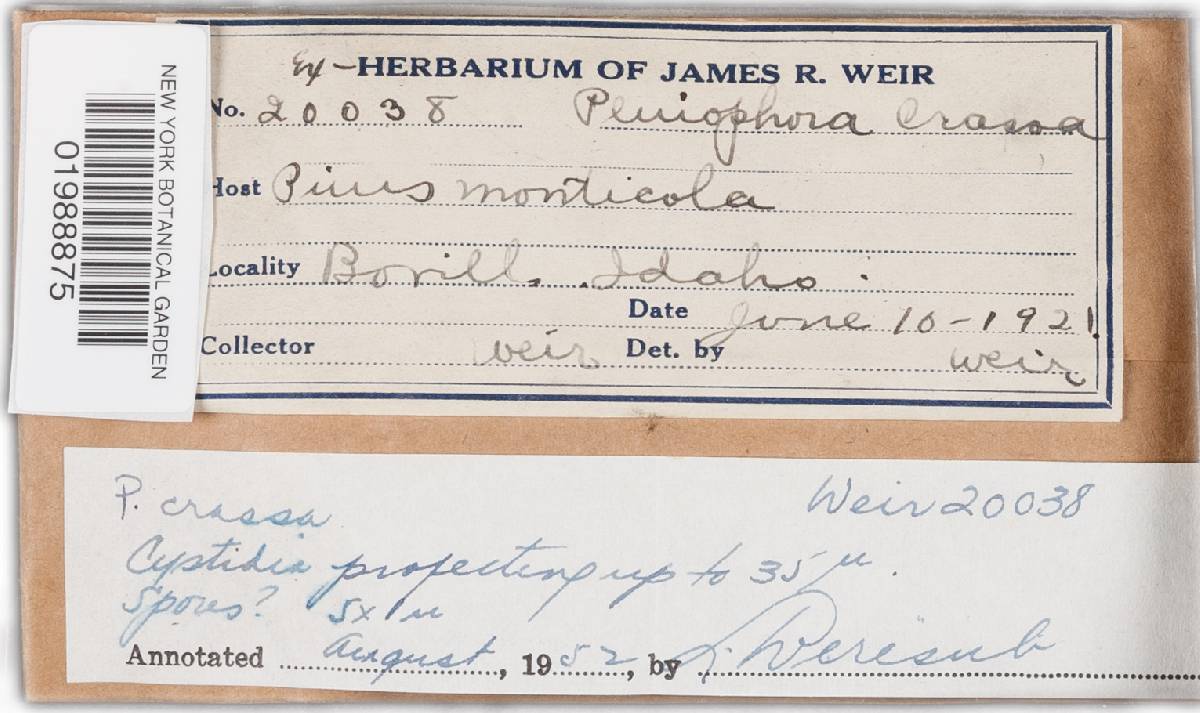 NEW YORK BOTANICAL GARDEN
01988875
Ex-HERBARIUM OF JAMES R. WEIR
No. 20038 Peniophora crassa
Host Pinus monticola
Locality Bovill, Idaho.
Date June 16-1921.
Collector Weir Det. by Weir
P. crassa Weir 20038
Cystidia projecting up to 35 μ.
Spores? 5x1 μ
Annotated August, 1952, by L. Weresub